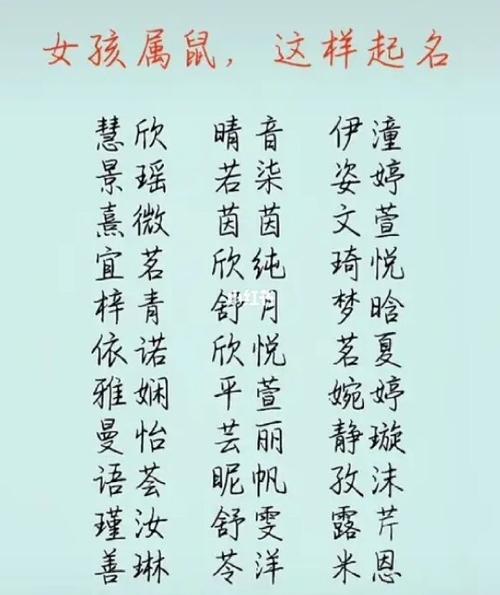 女孩属鼠，这样起名
慧欣 晴音 伊潼
景瑶 若柒 姿婷
熹微 茵茵 文萱
宜茗 欣纯 琦悦
梓青 舒月 梦晗
依诺 欣悦 茗夏
雅娴 平萱 婉婷
曼怡 芸丽 静璇
语荟 昵帆 孜沫
瑾汝 舒雯 露芹
善琳 苓洋 米恩